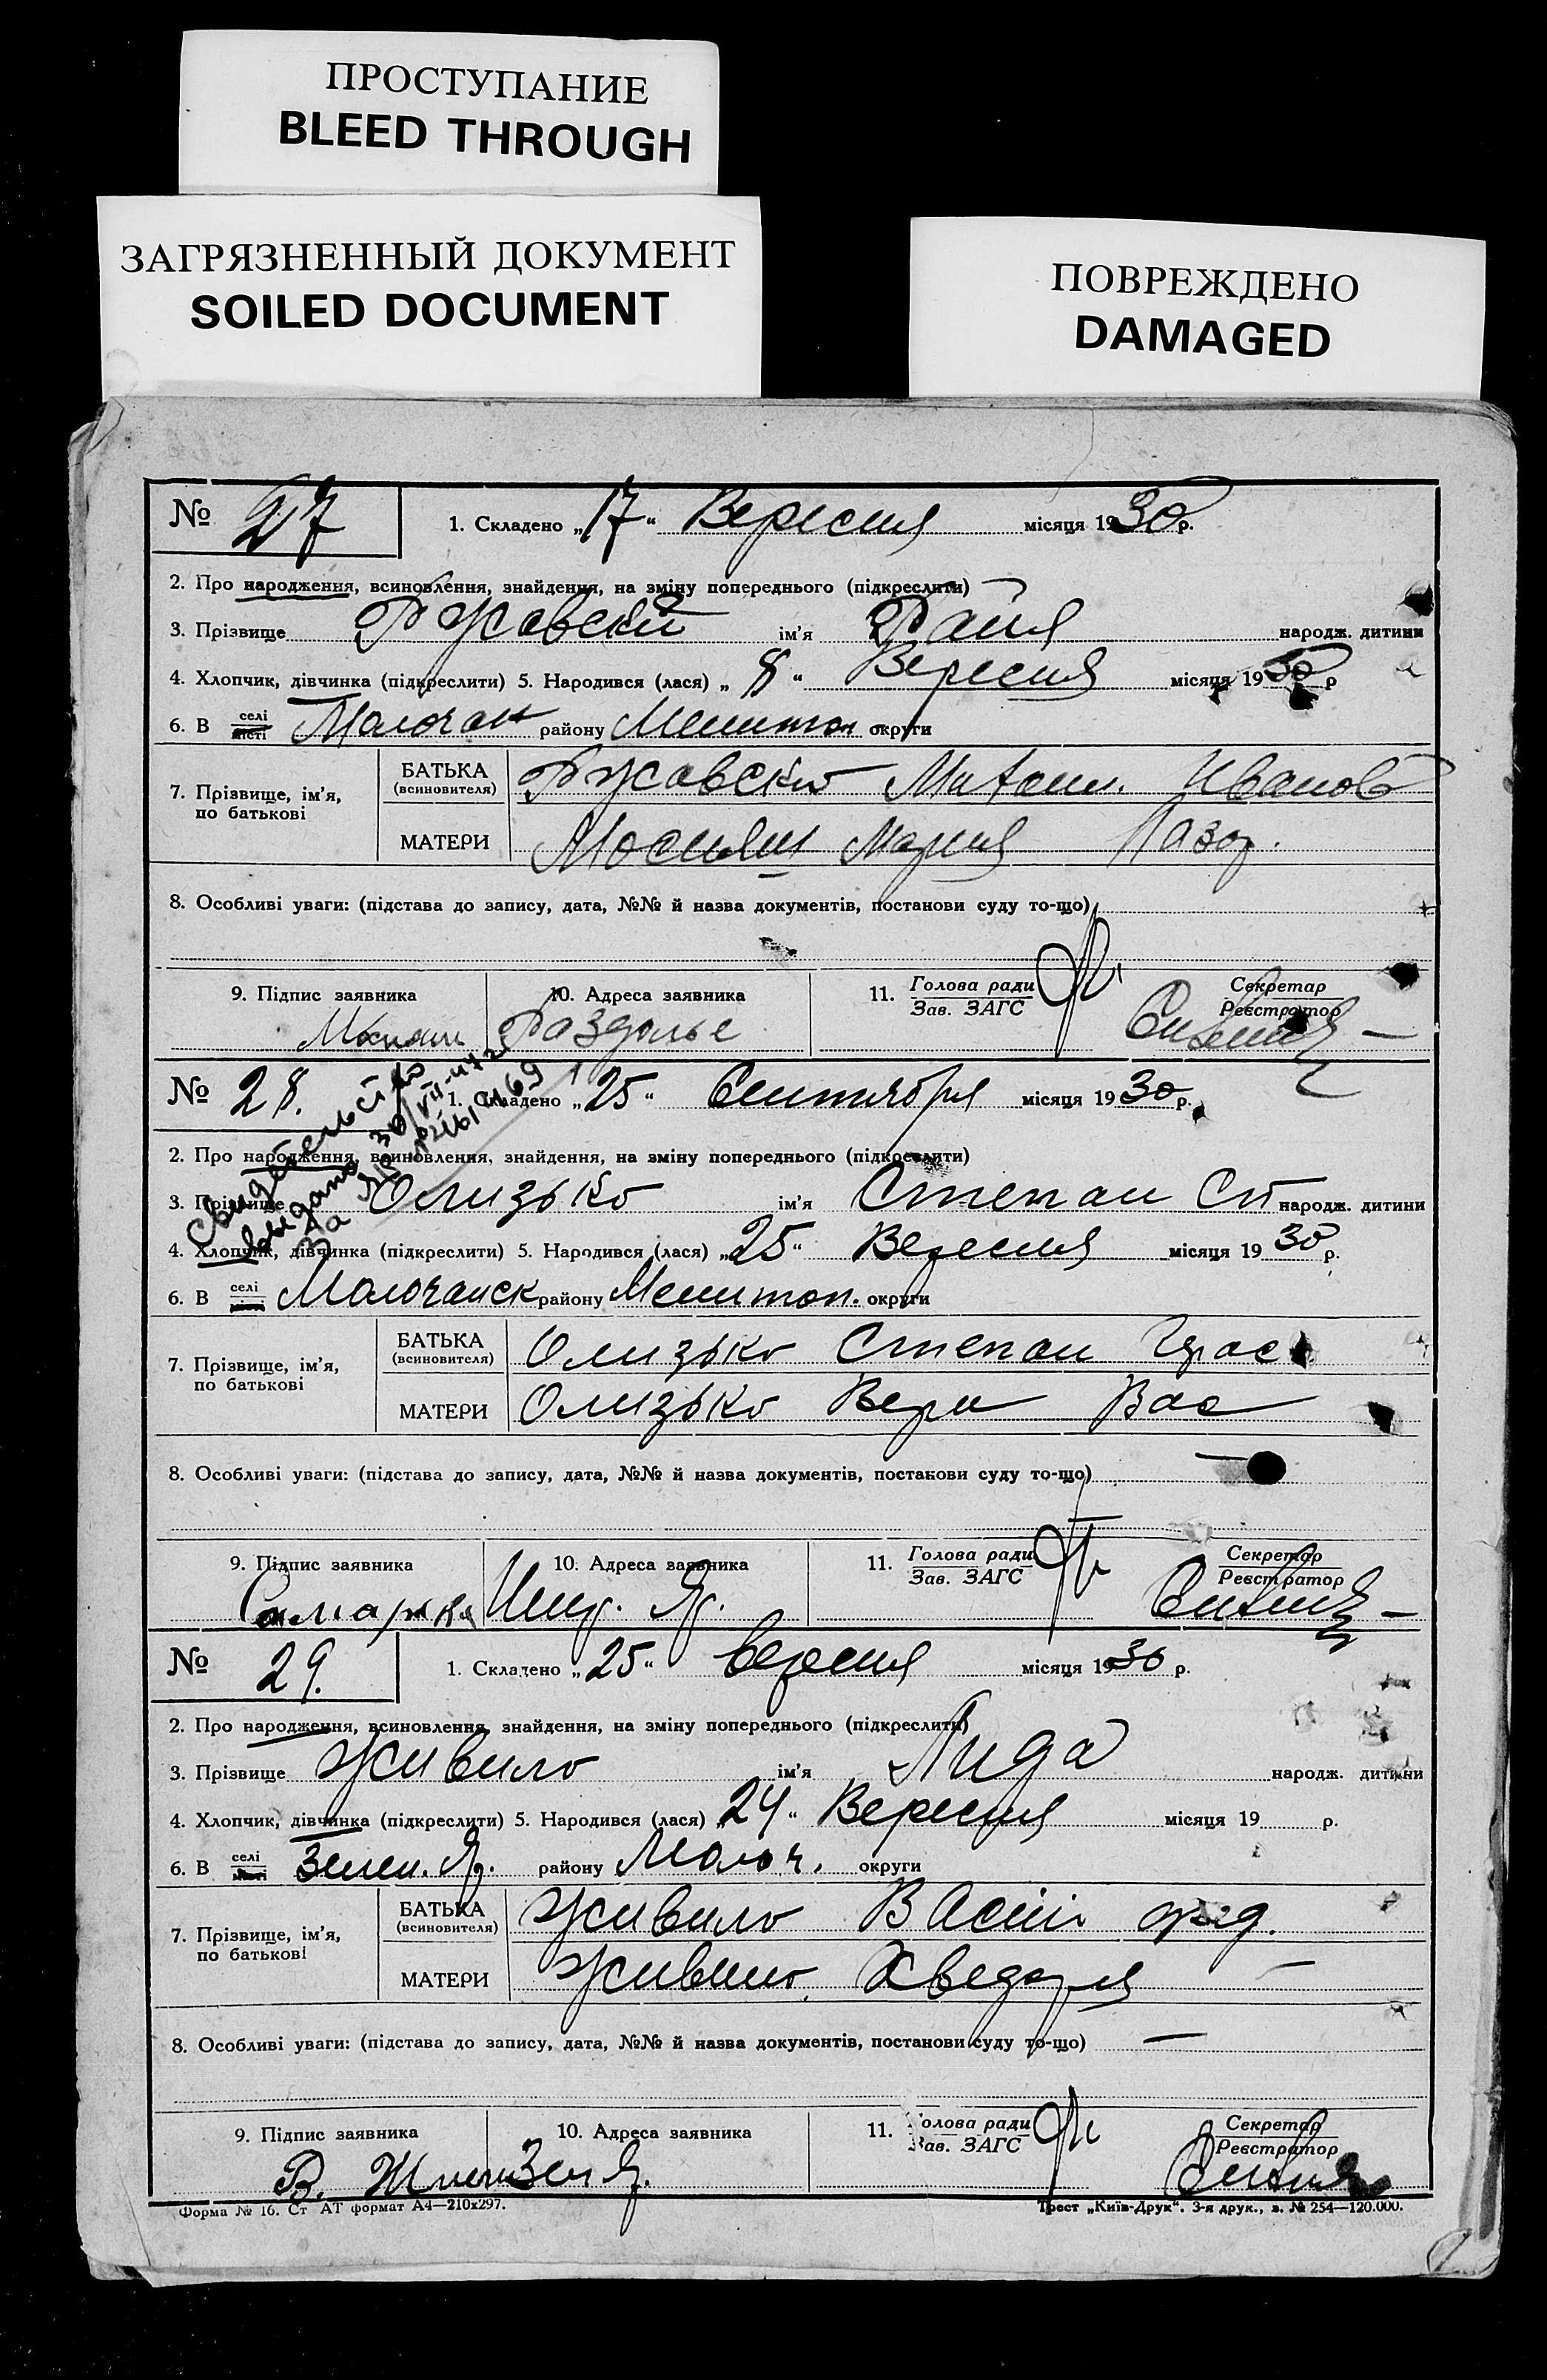 ПРОСТУПАНИЕ
BLEED THROUGH
ЗАГРЯЗНЕННЫЙ ДОКУМЕНТ
SOILED DOCUMENT
ПОВРЕЖДЕНО
DAMAGED
№ 27 1. Складено „17“ Вересня місяця 1930 р.
2. Про народження, всиновлення, знайдення, на зміну попереднього (підкреслити)
3. Прізвище Ржавский ім’я Рая народж. дитини
4. Хлопчик, дівчинка (підкреслити) 5. Народився (лася) „8“ Вересня місяця 1930 р
6. В селі місті Молочан району Мелитоп округи
7. Прізвище, ім’я, по батькові
БАТЬКА (всиновителя) Ржавский Иванов
МАТЕРИ Мария Лазор.
8. Особливі уваги: (підстава до запису, дата, №№ й назва документів, постанови суду то-що)
9. Підпис заявника 10. Адреса заявника 11. Голова ради Зав. ЗАГС Секретар Реєстратор
Раздолье
Свидетельство
выдано 30/VII-47 г.
За
№ 28. 1. Складено „25“ Сентября місяця 1930 р.
2. Про народження, всиновлення, знайдення, на зміну попереднього (підкреслити)
3. Прізвище Олизько ім’я Степан Ст народж. дитини
4. Хлопчик, дівчинка (підкреслити) 5. Народився (лася) „25“ Вересня місяця 1930 р.
6. В селі місті Молочанск району Мелитоп. округи
7. Прізвище, ім’я, по батькові
БАТЬКА (всиновителя) Олизько Степан
МАТЕРИ Олизько Вера Вас
8. Особливі уваги: (підстава до запису, дата, №№ й назва документів, постанови суду то-що) —
9. Підпис заявника 10. Адреса заявника 11. Голова ради Зав. ЗАГС Секретар Реєстратор
№ 29. 1. Складено „25“ вересня місяця 1930 р.
2. Про народження, всиновлення, знайдення, на зміну попереднього (підкреслити)
3. Прізвище Живило ім’я Лида народж. дитини
4. Хлопчик, дівчинка (підкреслити) 5. Народився (лася) „24“ Вересня місяця 19 р.
6. В селі місті Зелен. Яр. району Молоч. округи
7. Прізвище, ім’я, по батькові
БАТЬКА (всиновителя) Живило Васил
МАТЕРИ Живило Хведора —
8. Особливі уваги: (підстава до запису, дата, №№ й назва документів, постанови суду то-що) —
9. Підпис заявника 10. Адреса заявника 11. Голова ради Зав. ЗАГС Секретар Реєстратор
В. Зел Я.
Форма № 16. Ст АТ формат А4—210х297. Трест „Київ-Друк“. 3-я друк., з. № 254—120.000.